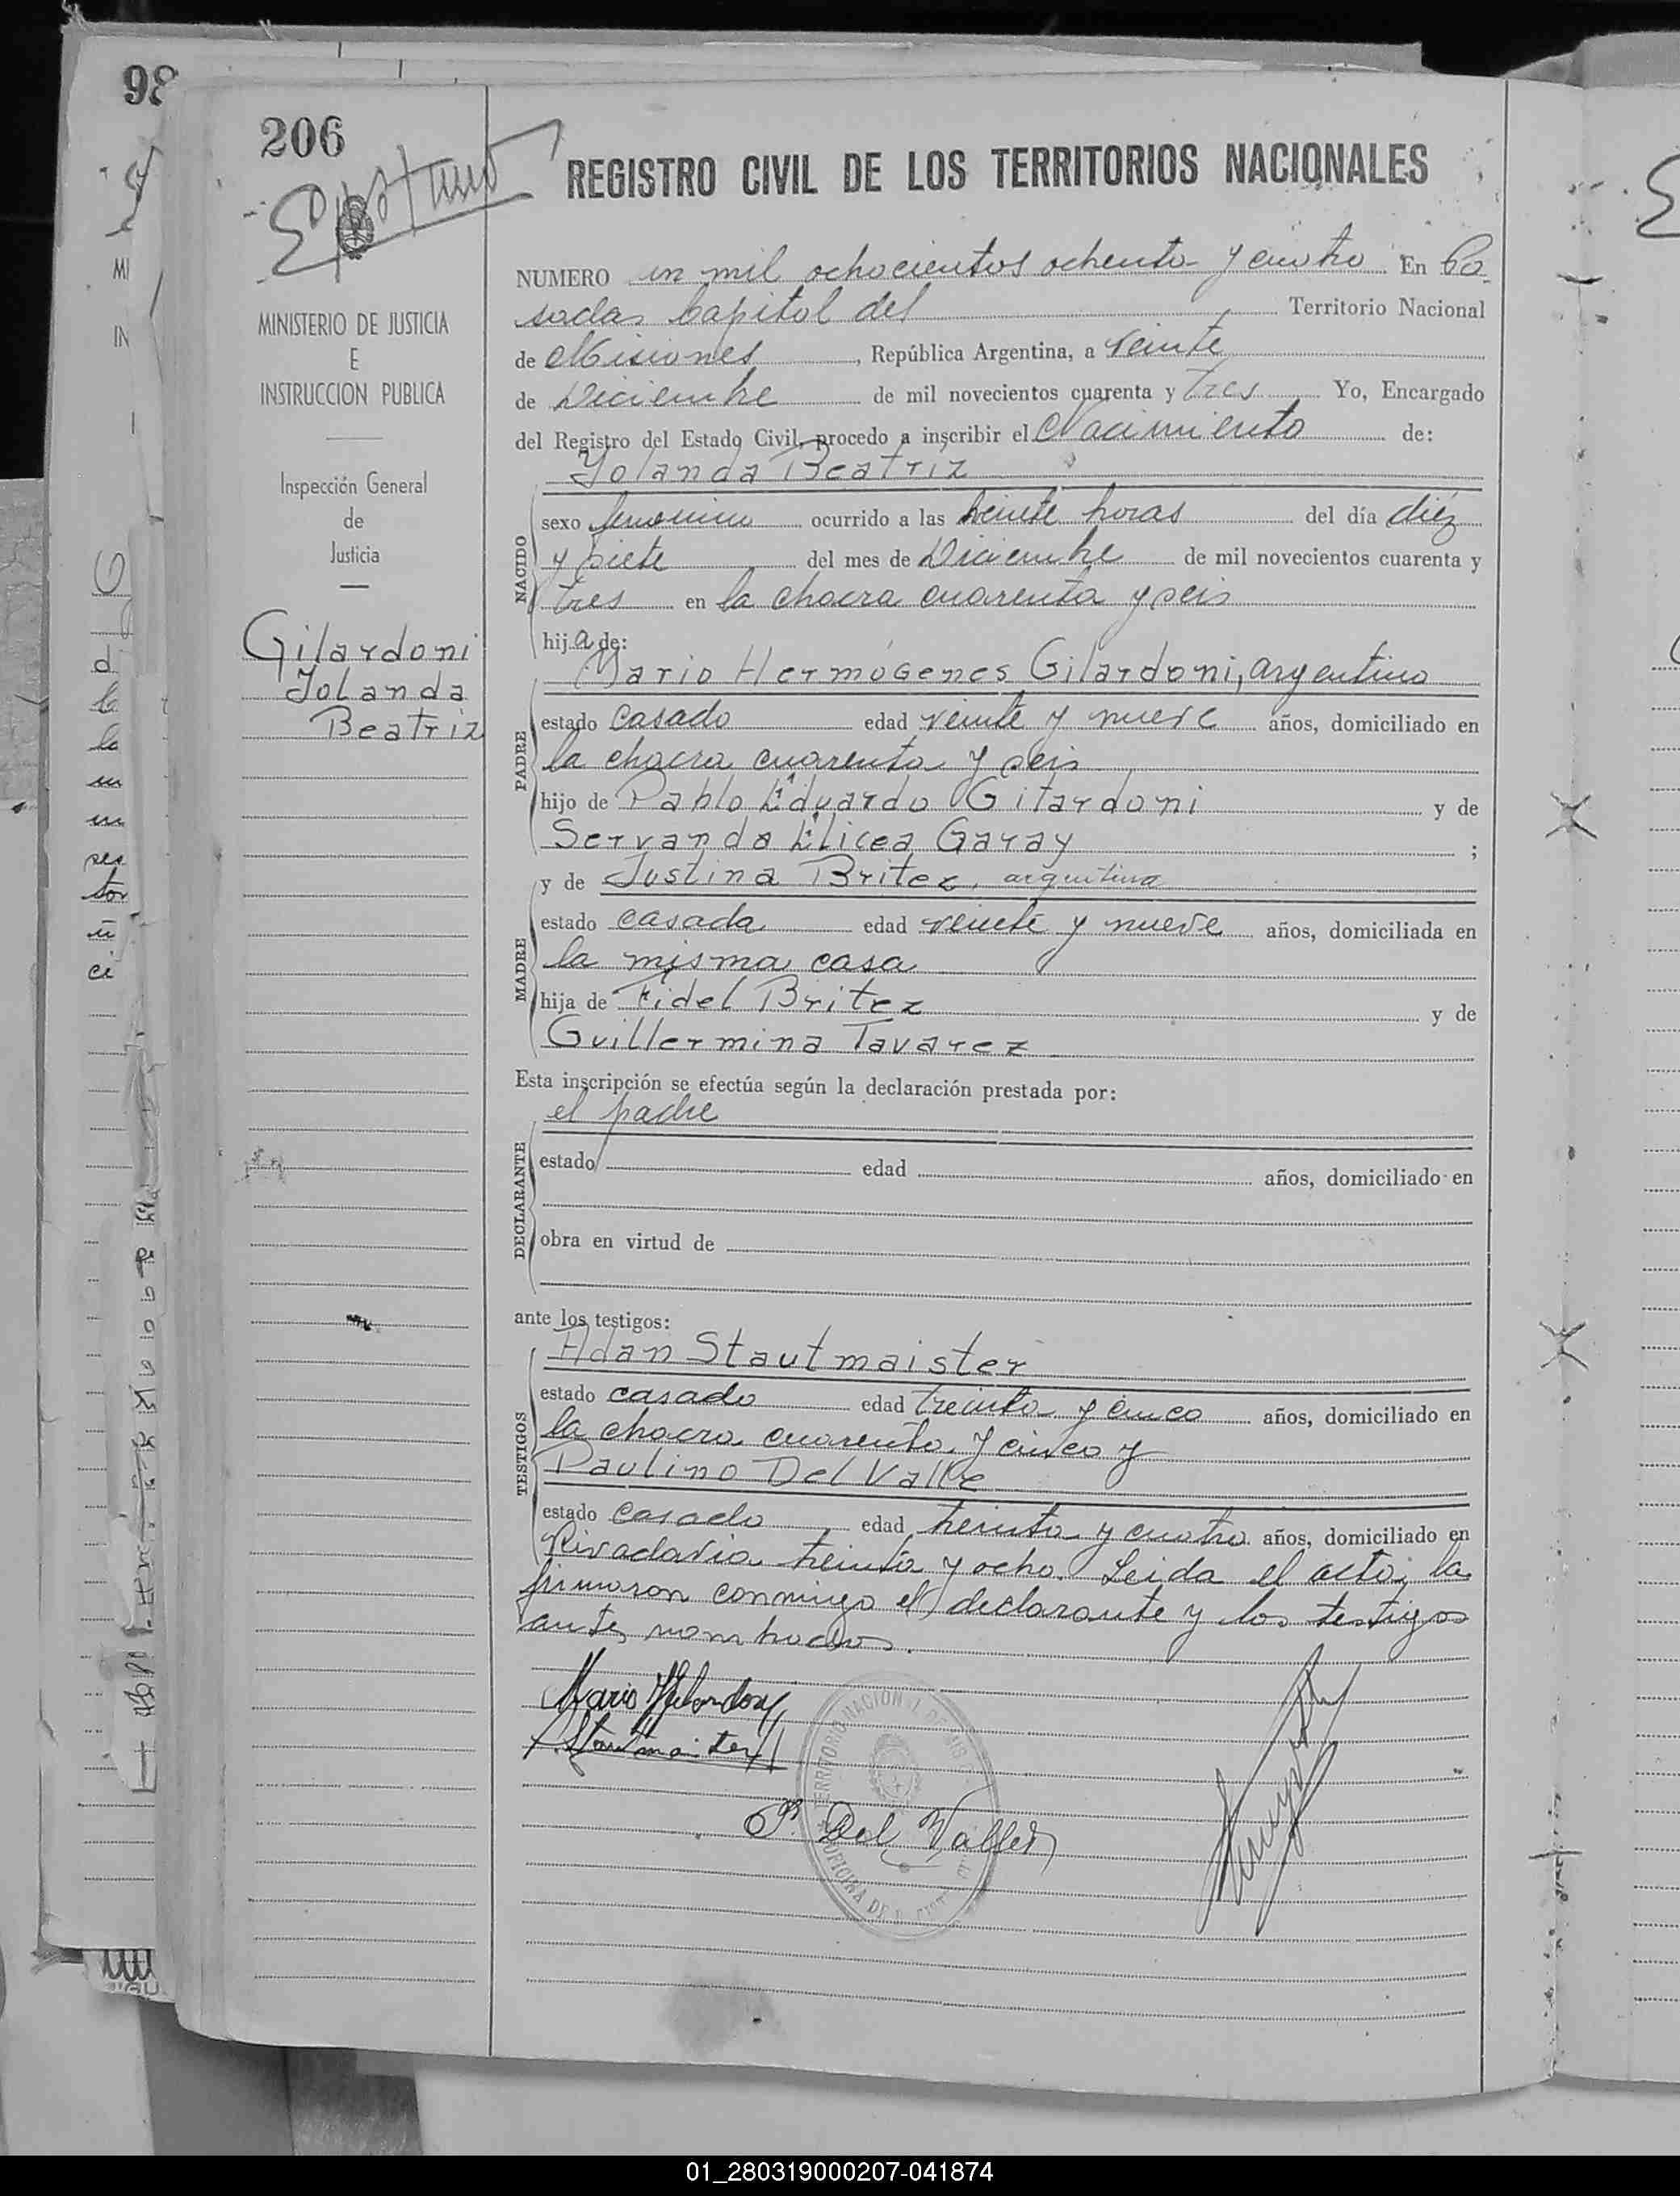 98
206
REGISTRO CIVIL DE LOS TERRITORIOS NACIONALES
MINISTERIO DE JUSTICIA
E
INSTRUCCION PUBLICA
Inspección General
de
Justicia
Gilardoni
Yolanda
Beatriz
NUMERO un mil ochocientos ochenta y cuatro En Po
sadas Capital del Territorio Nacional
de Misiones, República Argentina, a veinte
de Diciembre de mil novecientos cuarenta y tres Yo, Encargado
del Registro del Estado Civil, procedo a inscribir el Nacimiento de:
Yolanda Beatriz
NACIDO
sexo femenino ocurrido a las veinte horas del día diéz
y siete del mes de Diciembre de mil novecientos cuarenta y
tres en la chacra cuarenta y seis
hija de:
Mario Hermógenes Gilardoni, argentino
PADRE
estado casado edad veinte y nueve años, domiciliado en
la chacra cuarenta y seis
hijo de Pablo Eduardo Gilardoni y de
Servanda Elicea Garay ;
y de Justina Britez, argentina
MADRE
estado casada edad veinte y nueve años, domiciliada en
la misma casa
hija de Fidel Britez y de
Guillermina Tavarez
Esta inscripción se efectúa según la declaración prestada por:
el padre
DECLARANTE
estado edad años, domiciliado en
obra en virtud de
ante los testigos:
Adan Stautmaister
TESTIGOS
estado casado edad treinta y cinco años, domiciliado en
la chacra cuarenta y cinco y
Paulino Del Valle
estado casado edad treinta y cuatro años, domiciliado en
Rivadavia treinta y ocho. Leida el acta, la
firmaron conmigo el declarante y los testigos
antes nombrados.
Mario Gilardoni
Stautmaister
P. Del Valle
01_280319000207-041874